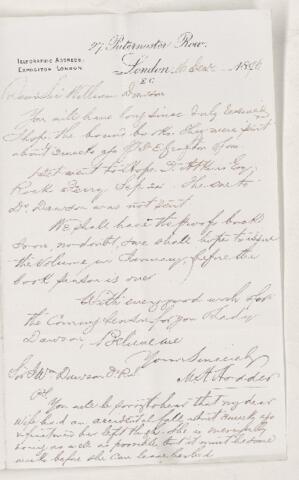 27, Paternoster Row.
TELEGRAPHIC ADDRESS:
EXPOSITOR LONDON.
London, 16 Dec 1886
E.C.
Dear Sir William Dawson
You will have long since duly received
I hope the bound books. They were sent
about 3 weeks ago
sent to
Rock Ferry The one to
Dr. Dawson was not sent
We shall have the proof back
soon, no doubt, & we shall hope to issue
the volume in January, before the
book season is over
With every good wish for
the Coming Season for you & Lady
Dawson, Believe me
Yours Sincerely
M H Hodder
Sir J Wm Dawson
PS
You will be sorry to hear that my dear
Wife had an accidental fall about weeks ago
& fractured her left thigh. she is mercifully
doing as well as possible, but it must be some
weeks before she can leave her bed